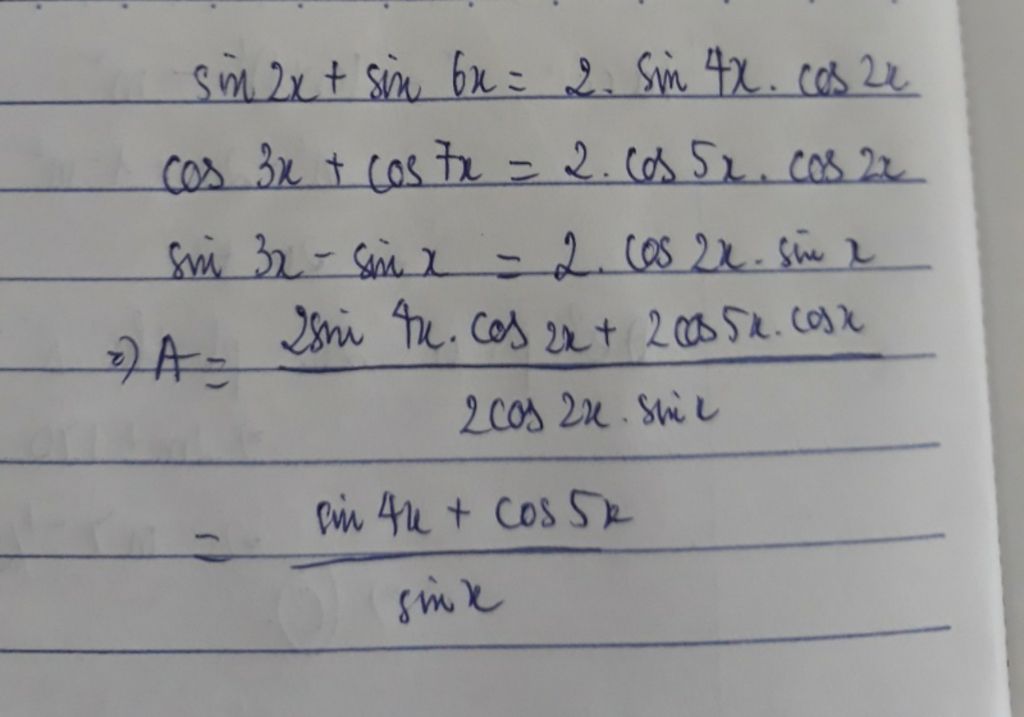 sin 2x + sin 6x = 2. sin 4x. cos 2x
cos 3x + cos 7x = 2. cos 5x. cos 2x
sin 3x - sin x = 2. cos 2x. sin x
=) A = (2sin 4x. cos 2x + 2cos5x. cosx) / (2cos 2x. sin x)
= (sin 4x + cos 5x) / (sin x)